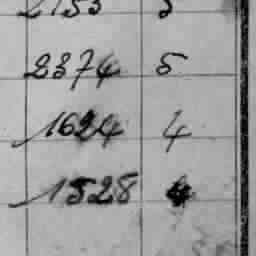 2153 5
2374 5
1624 4
1528 4